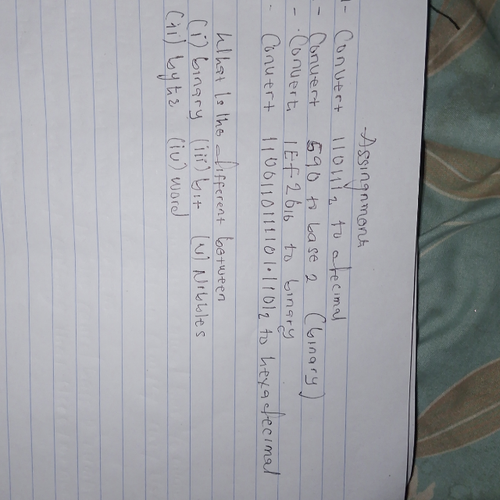 Assingnment
1- Convert 110111₂ to decimal
- Convert 590 to base 2 (binary)
- Convert 1EF2b₁₆ to binary
. Convert 11001101111101.1101₂ to hexadecimal
What is the different between
(i) binary (iii) bit (v) Nibbles
(ii) byte (iv) word